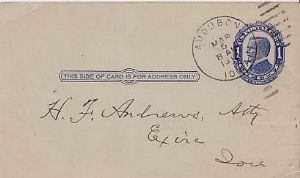 AUDUBON
MAR
6
8 AM
IOWA
1
THIS SIDE OF CARD IS FOR ADDRESS ONLY
H. F. Andrews, Atty
Exira
Iowa